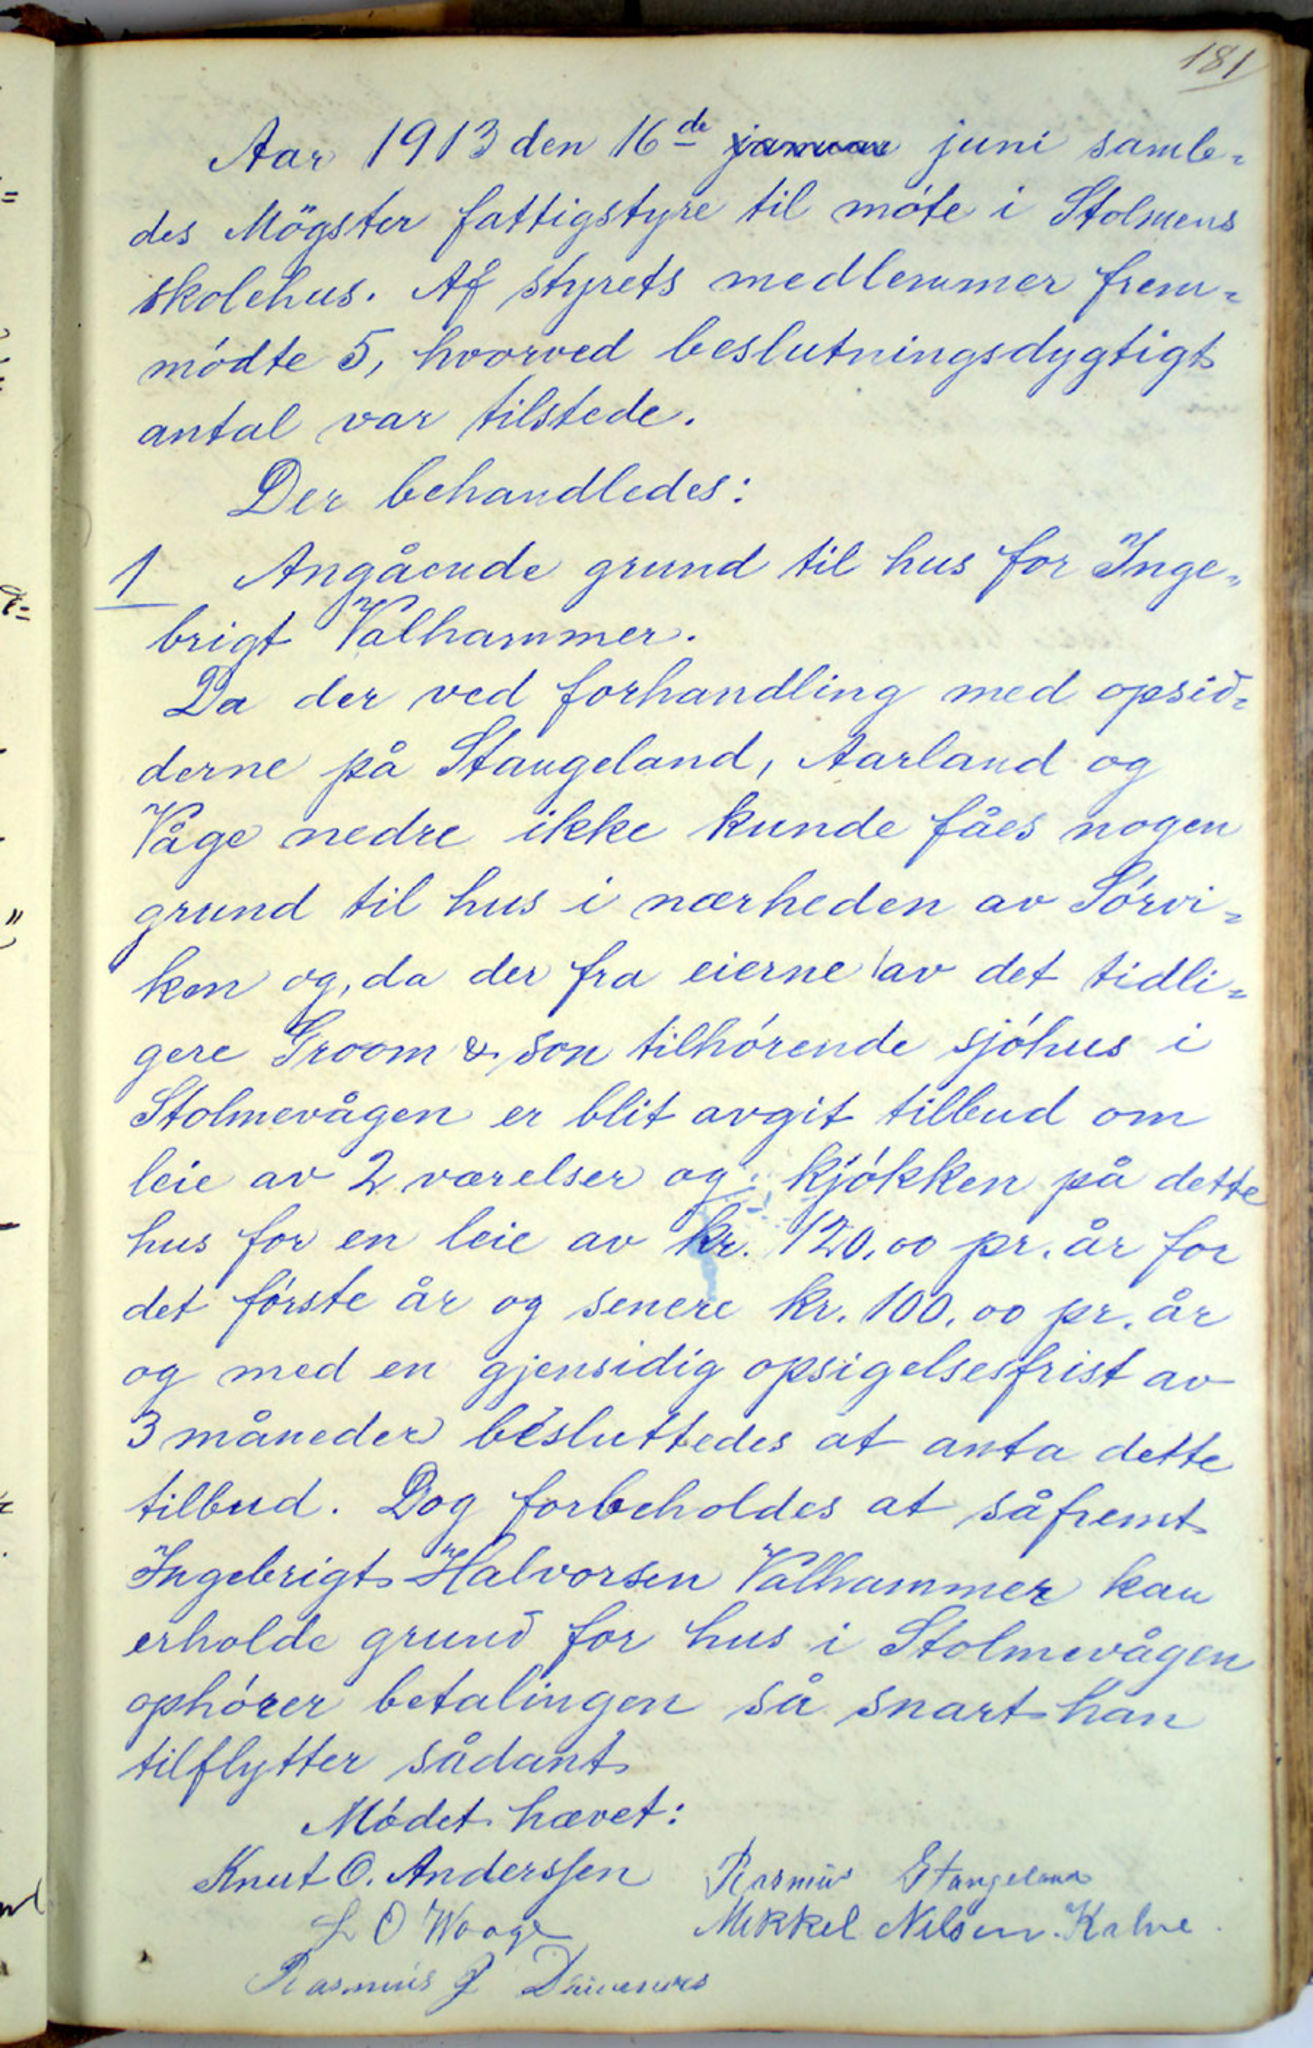 181
Aar 1913 den 16de januar juni samle=
des Mögster fattigstyre til móte i Stolmens
skolehus. Af styrets medlemmer frem=
módte 5, hvorved beslutningsdygtigt
antal var tilstede.
Der behandledes:
1 Angående grund til hus for Inge=
brigt Valhammer.
Da der ved forhandling med opsid=
derne på Stangeland, Aarland og
Våge nedre ikke kunde fåes nogen
grund til hus i nærheden av Sórvi=
ken og, da der fra eierne av det tidli=
gere Groom & son tilhórende sjóhus i
Stolmevågen er blit avgit tilbud om
leie av 2 værelser og kjókken på dette
hus for en leie av kr. 120,00 pr. år for
det fórste år og senere kr. 100,00 pr. år
og med en gjensidig opsigelsesfrist av
3 måneder besluttedes at anta dette
tilbud. Dog forbeholdes at såfremt
Ingebrigt Halvorsen Valhammer kan
erholde grund for hus i Stolmevågen
ophórer betalingen så snart han
tilflytter sådant
Módet hævet:
Knut O. Anderssen Rasmus Stangeland
L O Waage Mikkel Nilsen Kalve.
Rasmus J